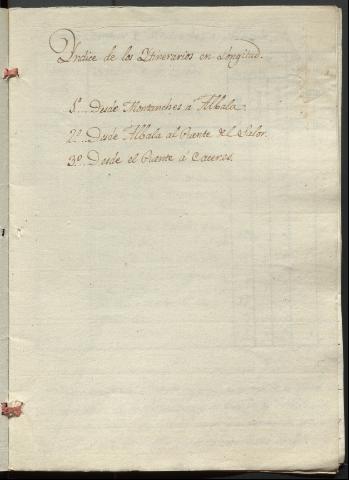 Yndice de los Ytinerarios en Longitud.
1º... Desde Montanches á Albala.
2º... Desde Albala al Puente del Salor.
3º. Desde el Puente á Caceres.